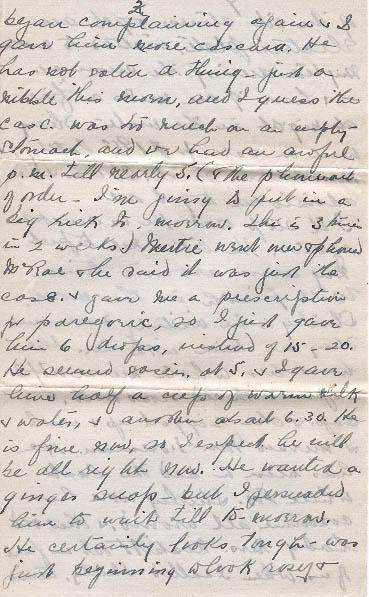 2
began complaining again & I
gave him more cascara. He
has not eaten a thing - just a
nibble this morn, and I guess the
casc. was too much on an empty
stomach, and we had an awful
p.m. till nearly 5. (& the phone out
of order - I'm going to put in a
big kick to-morrow. This is 3 times
in 2 weeks) Mertie went over & phoned
McRae & he said it was just the
casc. & gave me a prescription
for paregoric, so I just gave
him 6 drops, instead of 15-20.
He seemed easier at 5, & I gave
him half a cup of warm milk
& water, & another about 6.30. He
is fine now, so I expect he will
be all right now. He wanted a
ginger snap - but I persuaded
him to wait till to-morrow.
He certainly looks tough - was
just beginning to look rosy &